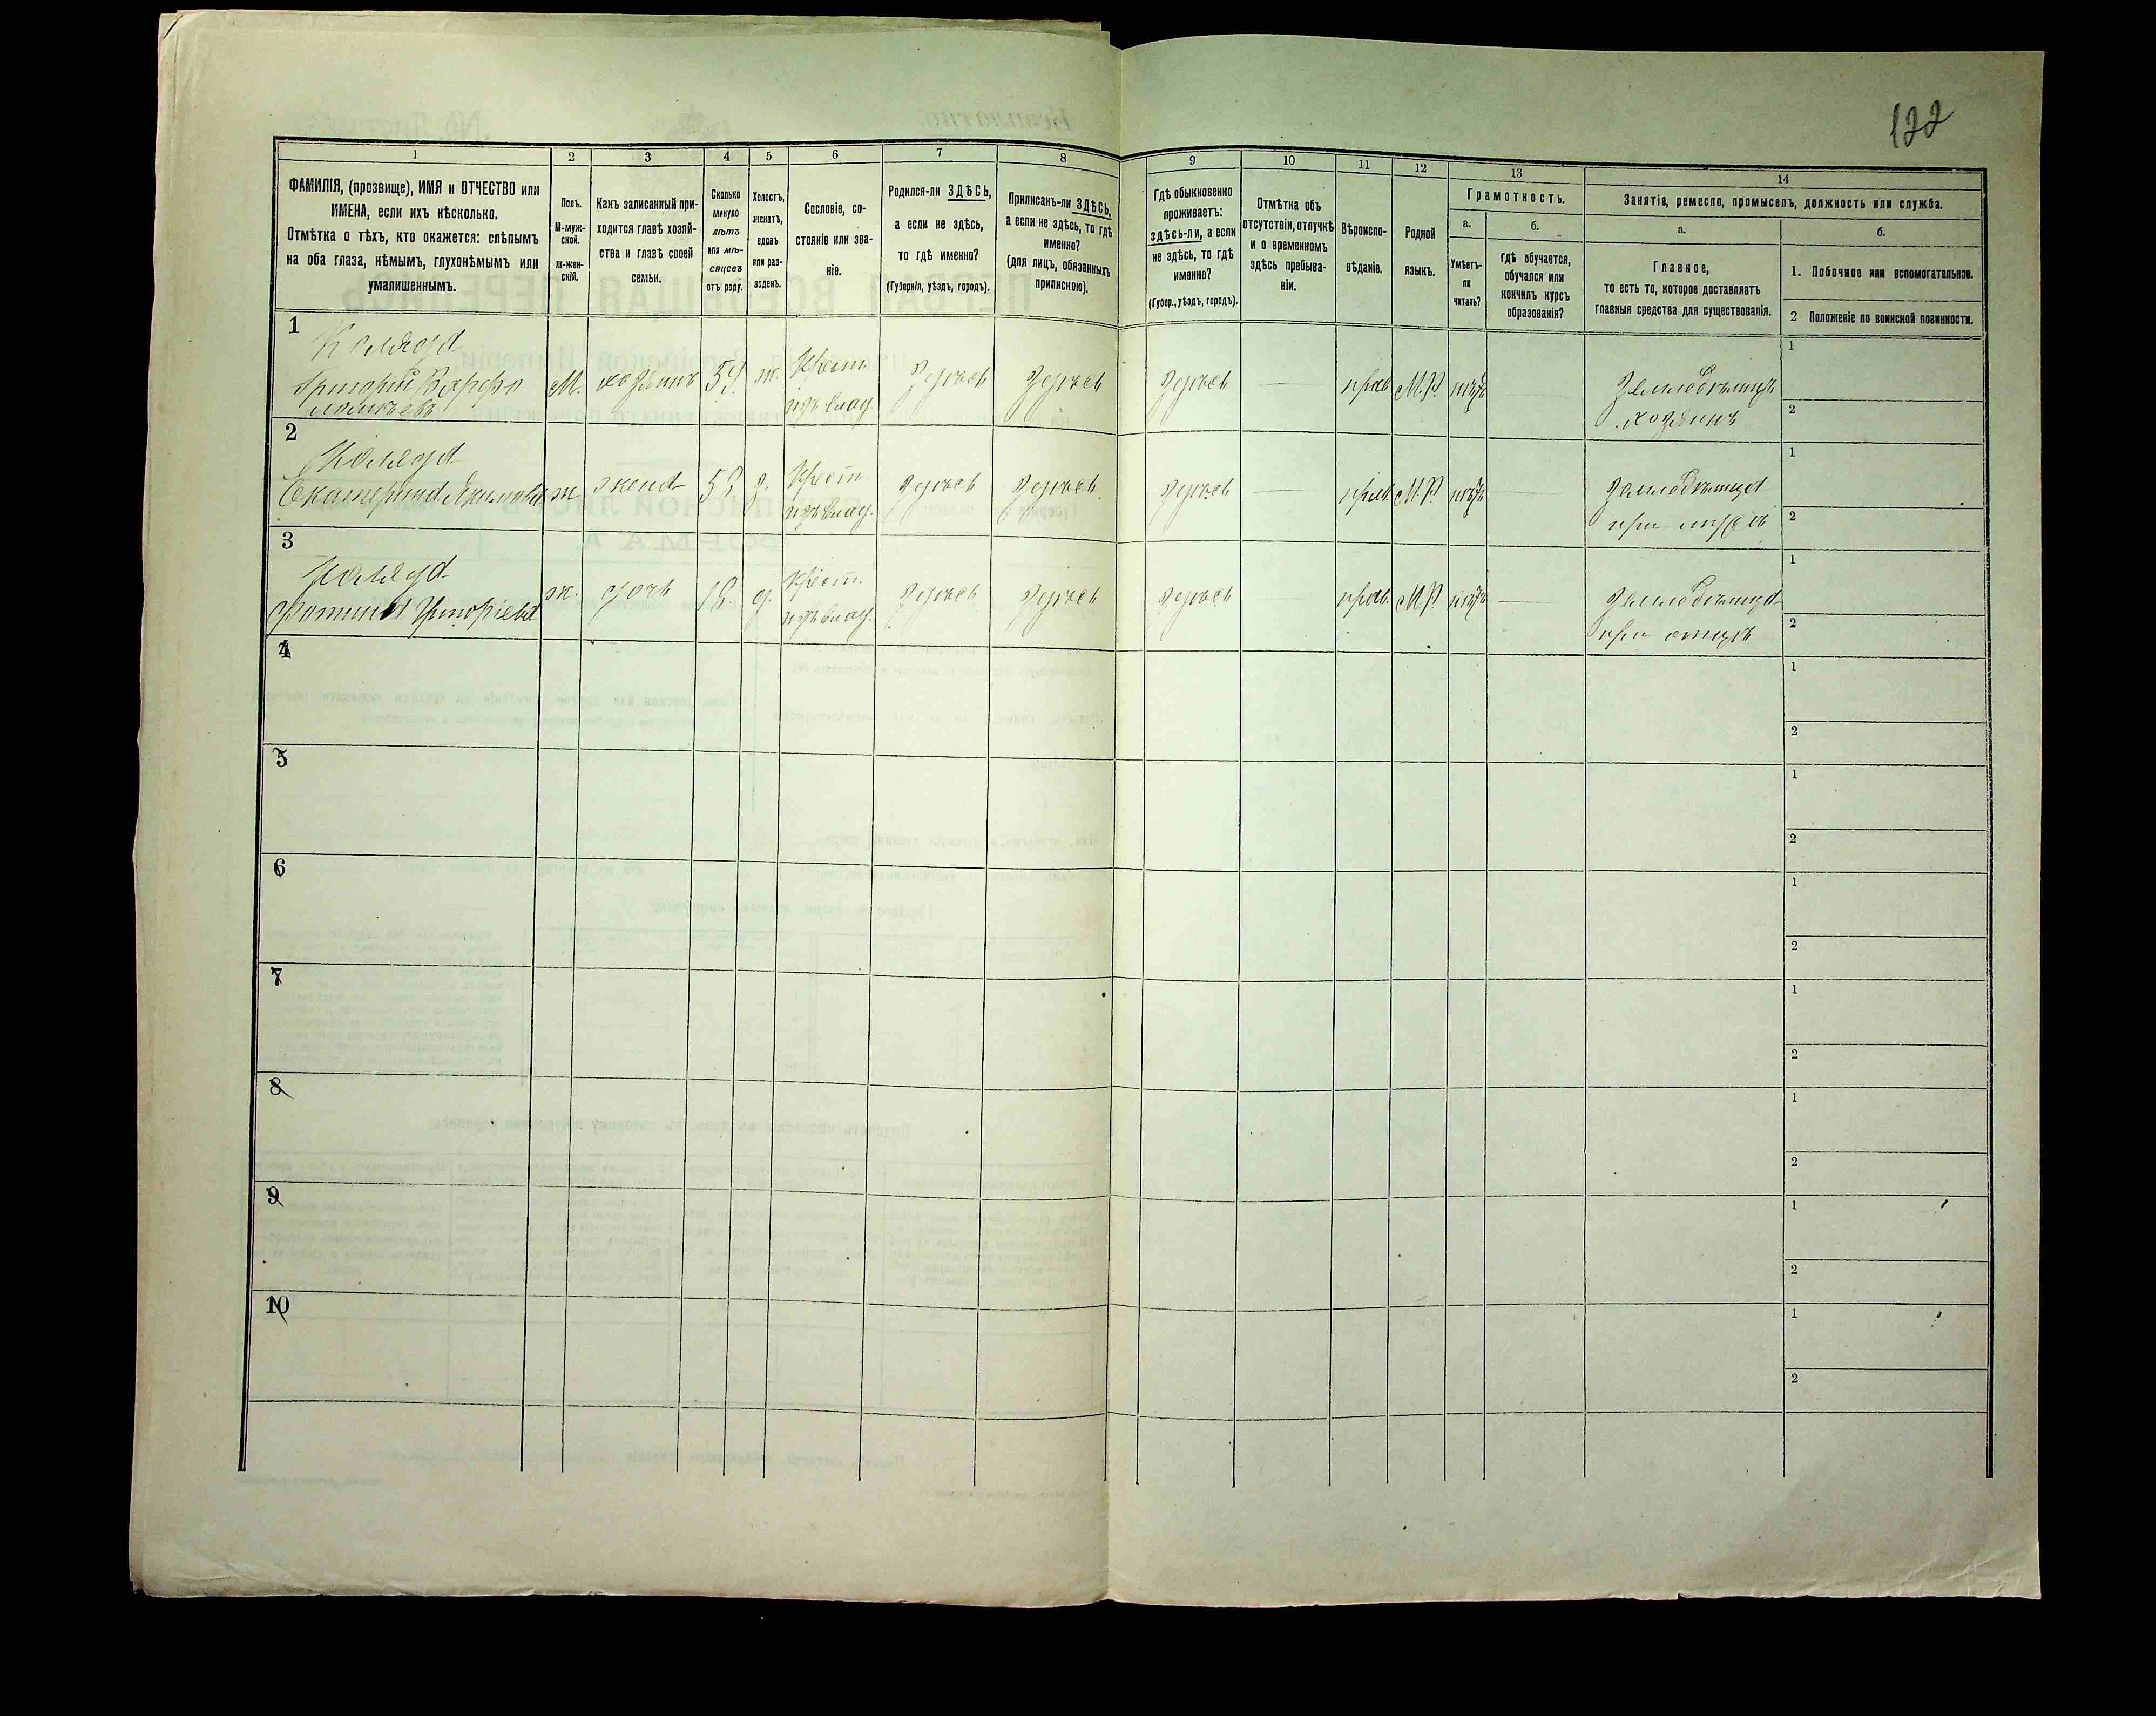 122
1 2 3 4 5 6 7 8 9 10 11 12 13 14
ФАМИЛІЯ, (прозвище), ИМЯ и ОТЧЕСТВО или
ИМЕНА, если ихъ нѣсколько.
Отмѣтка о тѣхъ, кто окажется: слѣпымъ
на оба глаза, нѣмымъ, глухонѣмымъ или
умалишеннымъ.
Полъ.
М-муж-
ской.
ж-жен-
скій.
Какъ записанный при-
ходится главѣ хозяй-
ства и главѣ своей
семьи.
Сколько
минуло
лѣтъ
или мѣ-
сяцевъ
отъ роду.
Холостъ,
женатъ,
вдовъ
или раз-
веденъ.
Сословіе, со-
стояніе или зва-
ніе.
Родился-ли ЗДѢСЬ,
а если не здѣсь,
то гдѣ именно?
(Губернія, уѣздъ, городъ).
Приписанъ-ли ЗДѢСЬ,
а если не здѣсь, то гдѣ
именно?
(для лицъ, обязанныхъ
припискою).
Гдѣ обыкновенно
проживаетъ:
здѣсь-ли, а если
не здѣсь, то гдѣ
именно?
(Губер., уѣздъ, городъ).
Отмѣтка объ
отсутствіи, отлучкѣ
и о временномъ
здѣсь пребыва-
ніи.
Вѣроиспо-
вѣданіе.
Родной
языкъ.
Грамотность.
а.
Умѣетъ-
ли
читать?
б.
гдѣ обучается,
обучался или
кончилъ курсъ
образованія?
Занятіе, ремесло, промыселъ, должность или служба.
а.
Главное,
то есть то, которое доставляетъ
главныя средства для существованія.
б.
1. Побочное или вспомогательное.
2 Положеніе по воинской повинности.
1
Коляда
Григорій Варфо
ломѣевъ
М. хозяинъ 59 ж. Крест. изъ влад. здѣсь здѣсь здѣсь — прав. М.Р. нѣтъ — Земледѣлецъ
хозяинъ
1
2
2
Коляда
Екатерина Якимова
ж жена 53 з. Крест изъ влад. здѣсь здѣсь. здѣсь — прав. М.Р. нѣтъ — Земледѣлица
при мужѣ
1
2
3
Коляда
Григоріева
ж. дочь 18. д. Крест. изъ влад. здѣсь здѣсь здѣсь — прав. М.Р. нѣтъ — Земледѣлица
при отцѣ
1
2
4
1
2
5
1
2
6
1
2
7
1
2
8
1
2
9
1
2
10
1
2